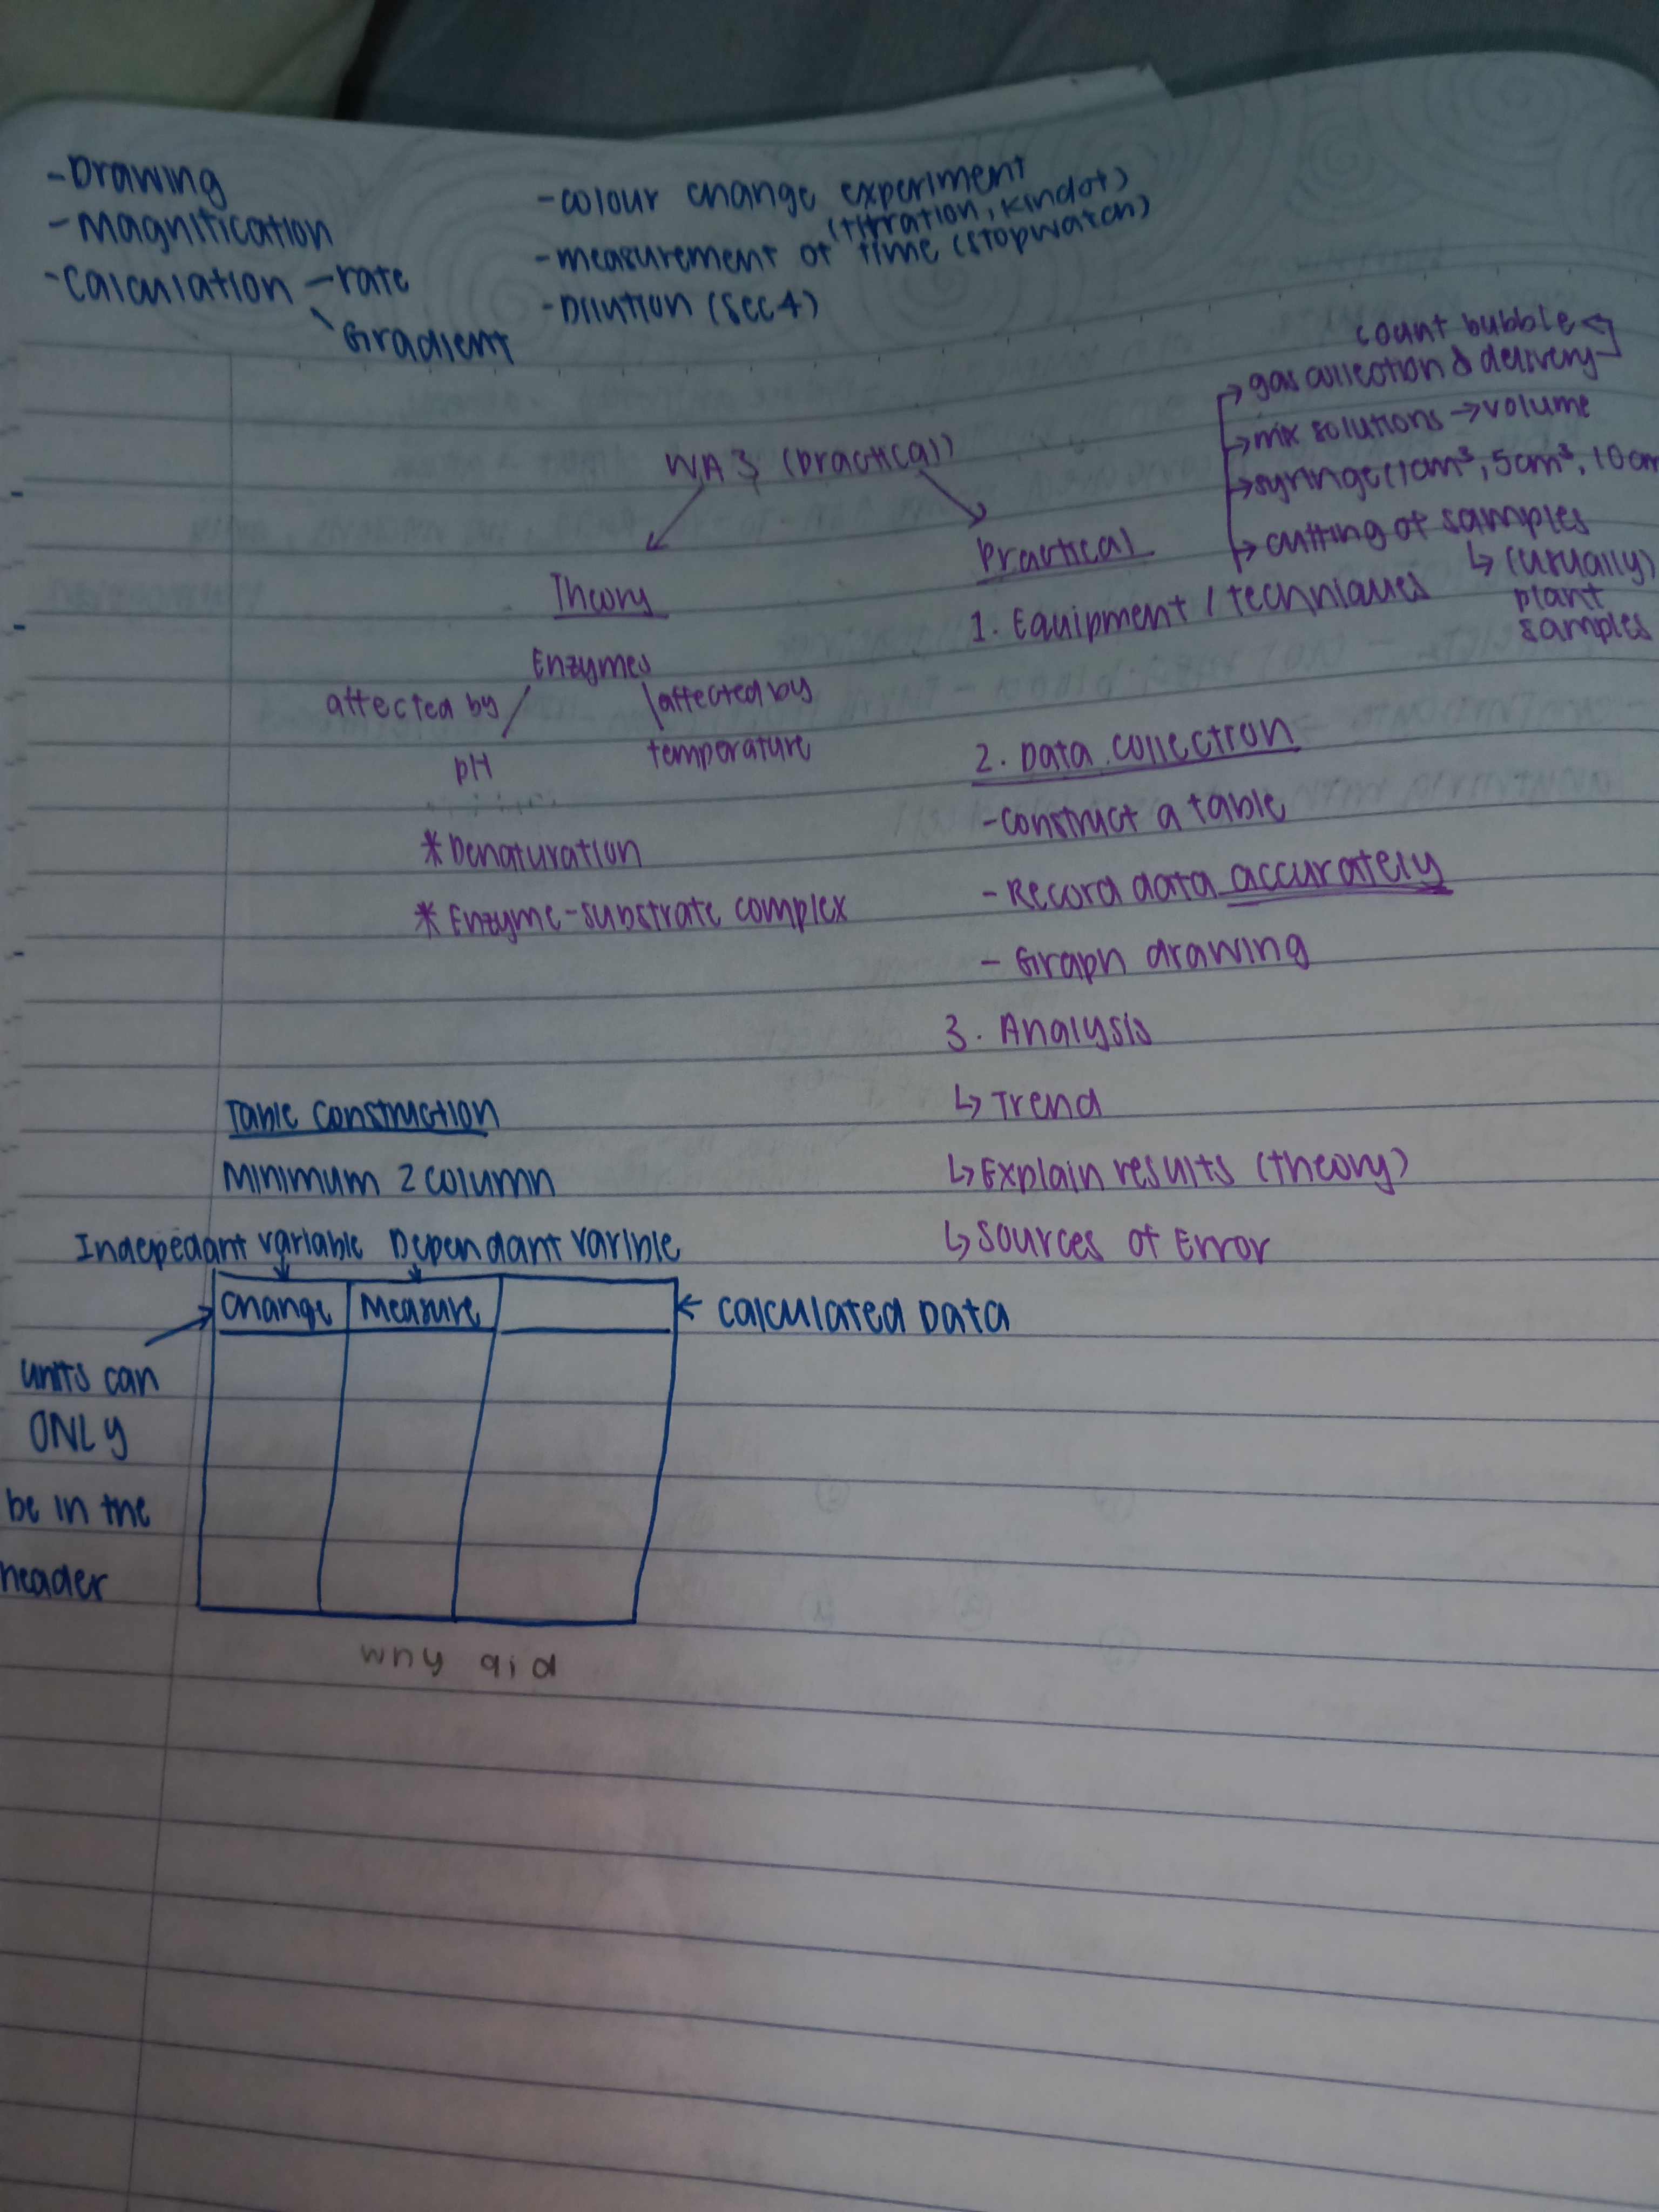 -Drawing
-Magnification
-Calculation -rate
Gradient
-colour change experiment
(titration, kindof)
-measurement of time (stopwatch)
-Dilution (sec 4)
WA3 (practical)
Theory
Enzymes
affected by
pH
affected by
temperature
*Denaturation
*Enzyme-substrate complex
Practical
1. Equipment / techniques
count bubble
→gas collection & delivery
→mix solutions → volume
→syringe (1cm³, 5cm³, 10cm
→cutting of samples
↳ (usually)
plant
samples
2. Data collection
-construct a table
-Record data accurately
- Graph drawing
3. Analysis
↳ Trend
↳ Explain results (theory)
↳ Sources of Error
Table construction
Minimum 2 column
Indepedant variable Dependant varible
change measure
← Calculated Data
units can
ONLY
be in the
header
why did